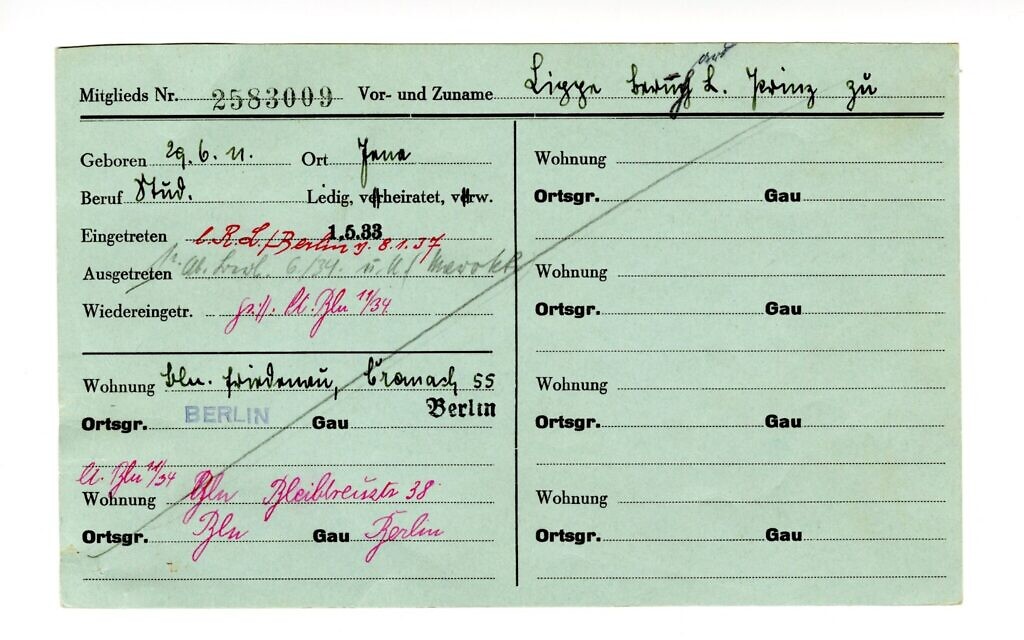 Mitglieds Nr. 2583009 Vor- und Zuname Lippe Bernh L. Prinz zu
Geboren 29.6.11. Ort Jena
Beruf Stud. Ledig, verheiratet, verw.
Eingetreten 1.5.33
l. R.L./Berlin v. 8.1.37
Ausgetreten 6/34.
Wiedereingetr. lt. Bln 11/34
Wohnung Bln. Friedenau, Cranach 55
Ortsgr. BERLIN Gau Berlin
lt. Bln 11/34
Wohnung Bln Bleibtreustr 38
Ortsgr. Bln Gau Berlin
Wohnung
Ortsgr. Gau
Wohnung
Ortsgr. Gau
Wohnung
Ortsgr. Gau
Wohnung
Ortsgr. Gau